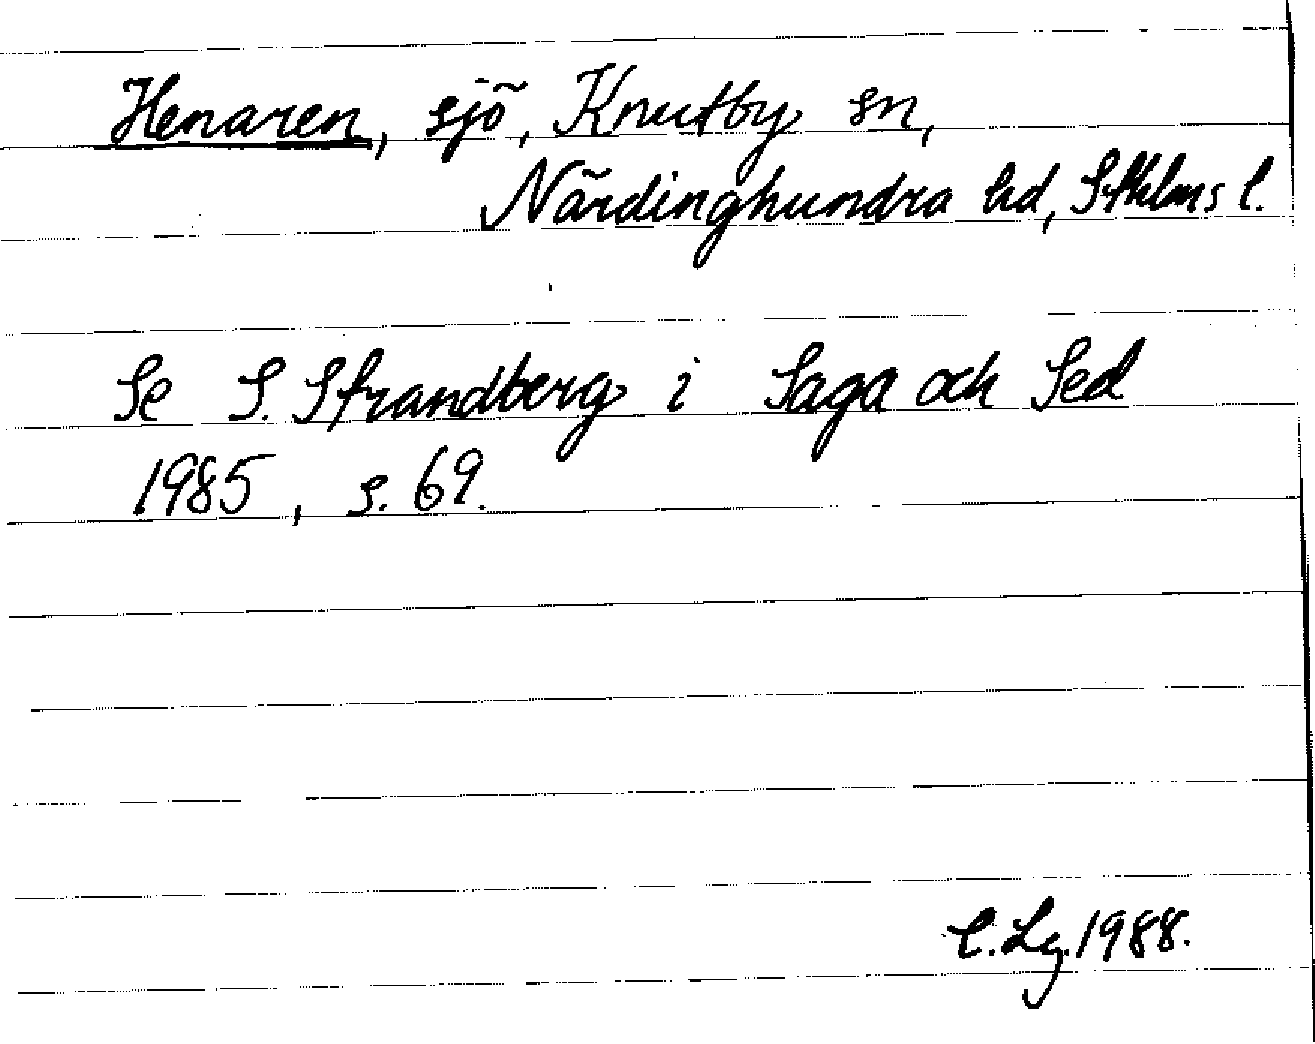 Henaren, sjö, Knutby sn,
Närdinghundra hd, Sthlms l.
Se S. Strandberg i Saga och Sed
1985, s. 69.
C. Lg. 1988.